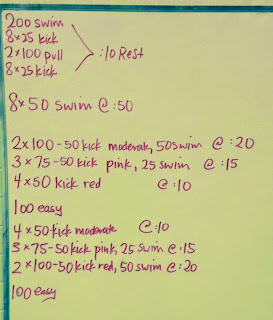 200 swim
8x25 kick
2x100 pull :10 Rest
8x25 kick
8x50 swim @ :50
2x100-50 kick moderate, 50 swim @ :20
3x75-50 kick pink, 25 swim @ :15
4x50 kick red @ :10
100 easy
4x50 kick moderate @ :10
3x75-50 kick pink, 25 swim @ :15
2x100-50 kick red, 50 swim @ :20
100 easy